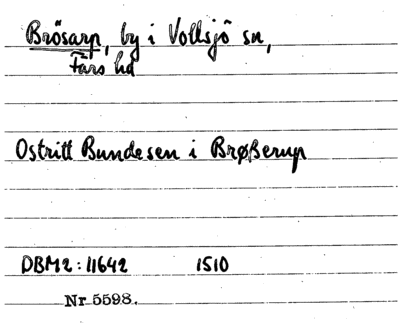 Brösarp, by i Vollsjö sn,
Färs hd
Ostritt Bundesen i Brøßerup
DBM2: 11642 1510
Nr 5598.